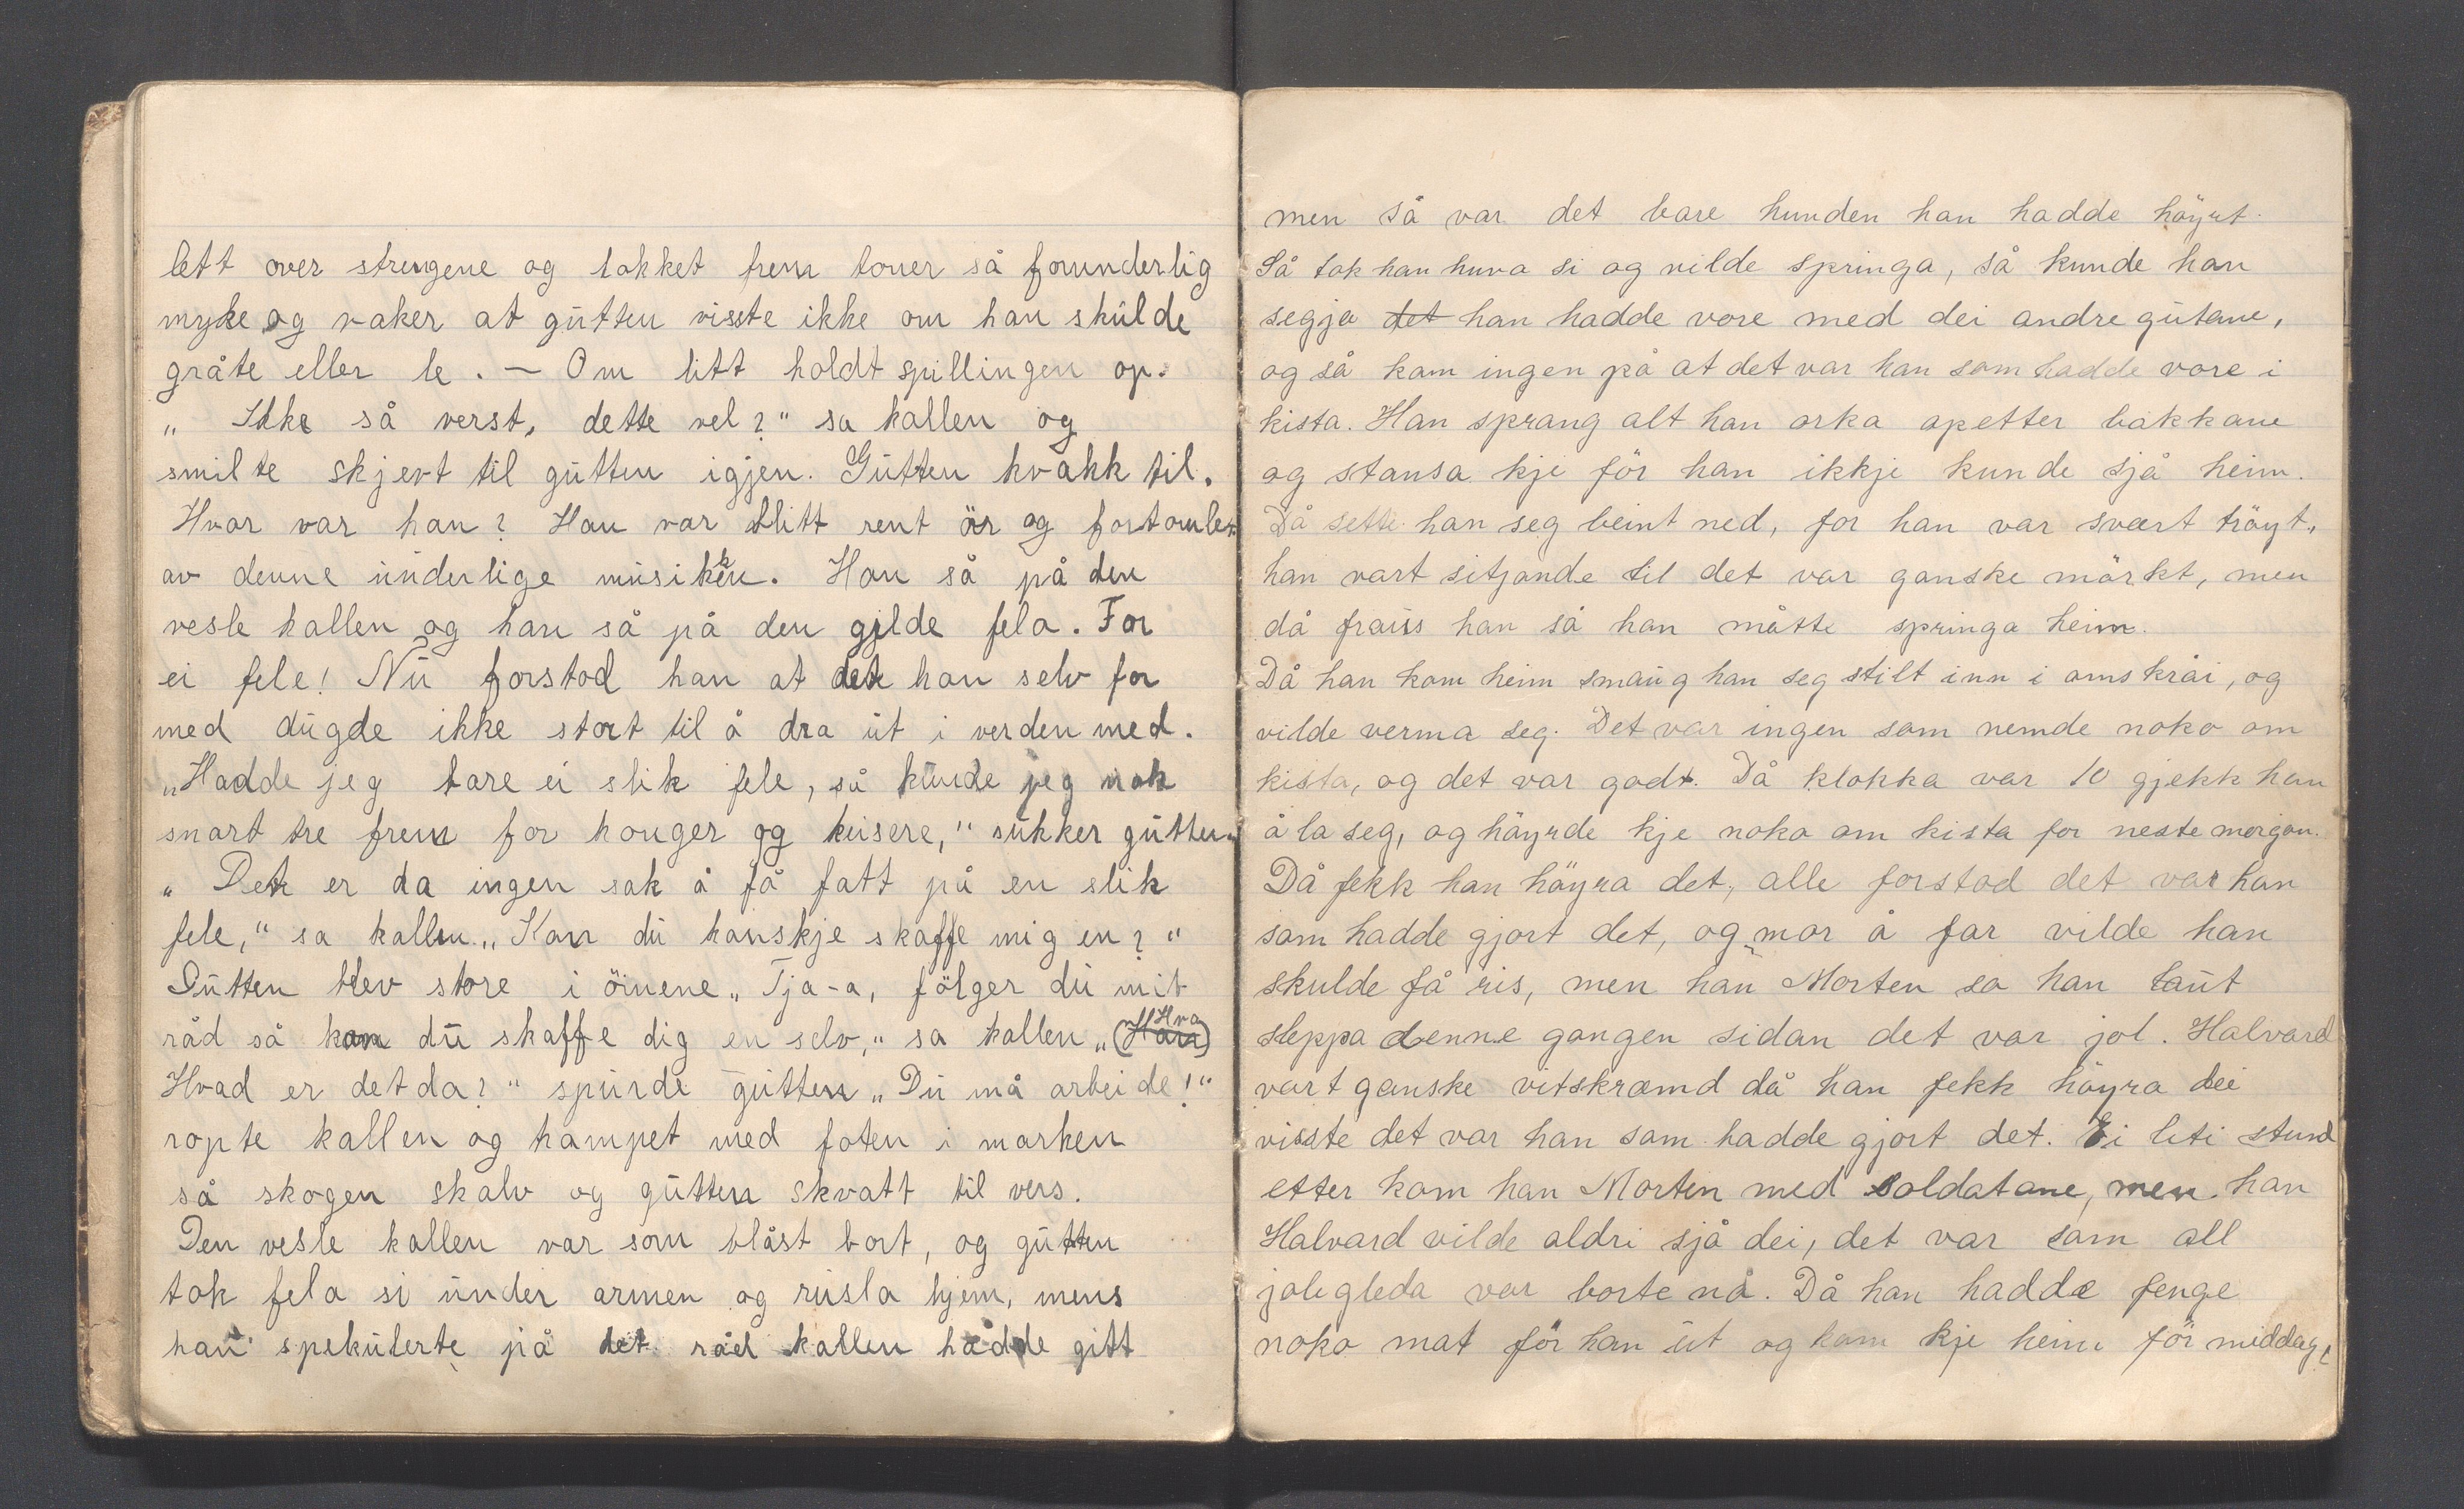 lett over strengene og lokket frem toner så forunderlig
myke og vaker at gutten visste ikke om han skulde
gråte eller le. — Om litt holdt spillingen op.
„ Ikke så verst, dette vel?" sa kallen og
smilte skjevt til gutten igjen. Gutten kvakk til.
Hvor var han? Han var blitt rent ör og fortomlet
av denne underlige musikken. Han så på den
vesle kallen og han så på den gilde fela. For
ei fele! Nu forstod han at det han selv for
med dugde ikke stort til å dra ut i verden med.
„Hadde jeg bare ei slik fele, så kunde jeg nok
snart tre frem for konger og keisere," sukker gutten.
„ Det er da ingen sak å få fatt på en slik
fele," sa kallen. „Kan du kanskje skaffe mig en?"
Gutten blev store i öinene „Tja-a, fölger du mit
råd så kan du skaffe dig en selv," sa kallen „(Han Hva)
Hvad er det da?" spurde gutten „Du må arbeide!"
ropte kallen og trampet med foten i marken
så skogen skalv og gutten skvatt til vers.
Den vesle kallen var som blåst bort, og gutten
tok fela si under armen og rusla hjem, mens
han spekulerte på det råd kallen hadde gitt
men så var det bare hunden han hadde höyrt.
Så tok han huva si og vilde springa, så kunde han
segja det han hadde vore med dei andre gutane,
og så kom ingen på at det var han som hadde vore i
kista. Han sprang alt han orka opetter bakkane
og stansa kje för han ikkje kunde sjå heim.
Då sette han seg beint ned, for han var svært tröyt,
han vart sitjande til det var ganske mörkt, men
då fraus han så han måtte springa heim.
Då han kom heim smaug han seg stilt inn i omskråi, og
vilde verma seg. Det var ingen som nemde noko om
kista, og det var godt. Då klokka var 10 gjekk han
å la seg, og höyrde kje noko om kista for neste morgon.
Då fekk han höyra det, alle forstod det var han
som hadde gjort det, og mor å far vilde han
skulde få ris, men han Morten sa han laut
sleppa denne gangen sidan det var jol. Halvard
vart ganske vitskræmd då han fekk höyra dei
visste det var han som hadde gjort det. Ei liti stund
etter kom han Morten med soldatane, men han
Halvard vilde aldri sjå dei, det var som all
jolegleda var borte nå. Då han hadde fenge
noko mat för han ut og kom kje heim för middag,